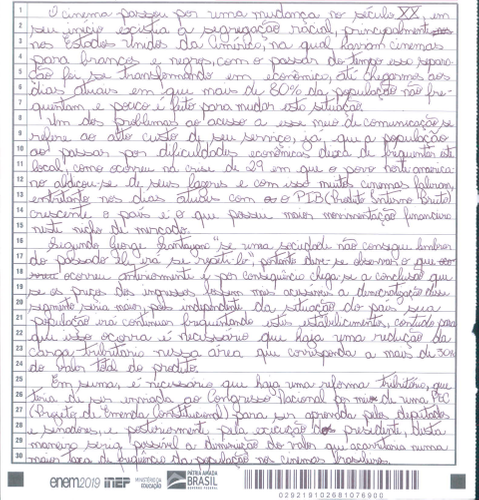 O cinema passou por uma mudança no século XX em
seu início existia a segregação racial, principalmente
nos Estados Unidos da América, na qual haviam cinemas
para brancos e negros, com o passar do tempo essa separa-
ção foi se transformando em econômica, até chegarmos aos
dias atuais em que mais de 80% da população não fre-
quentam, e pouco é feito para mudar esta situação.
Um dos problemas ao acesso a esse meio de comunicação se
refere ao alto custo de seu serviço, já que a população
ao passar por dificuldades econômicas deixa de frequentar este
local, como ocorreu na crise de 29 em que o povo norte americano
no abdicou-se de seus lazeres e com isso muitos cinemas faliram,
entretanto nos dias atuais com o PIB (Produto Interno Bruto)
crescente o país é o que possui maior movimentação financeira
neste nicho de mercado.
Segundo George Santayana "se uma sociedade não consegue lembrar
do passado irá se repeti-lo", portanto deve-se observar o que
ocorreu anteriormente e por consequência chega-se a conclusão que
se os preços dos ingressos fossem mais acessíveis a democratização desse
segmento seria maior, pois independente da situação do país sua
população irá continuar frequentando estes estabelecimentos, contudo para
que isso ocorra é necessário que haja uma redução da
carga tributária nessa área que corresponda a mais de 30%
do valor total do produto.
Em suma, é necessário que haja uma reforma tributária, que
teria de ser enviada ao Congresso Nacional por meio de uma PEC
(Projeto de Emenda Constitucional) para ser aprovada pelos deputados
e senadores, e posteriormente pela execução do presidente, desta
maneira seria possível a diminuição do valor que acarretaria numa
maior taxa de frequência da população nos cinemas brasileiros.
enem2019 inep MINISTÉRIO DA EDUCAÇÃO PÁTRIA AMADA BRASIL GOVERNO FEDERAL
029219102681076900